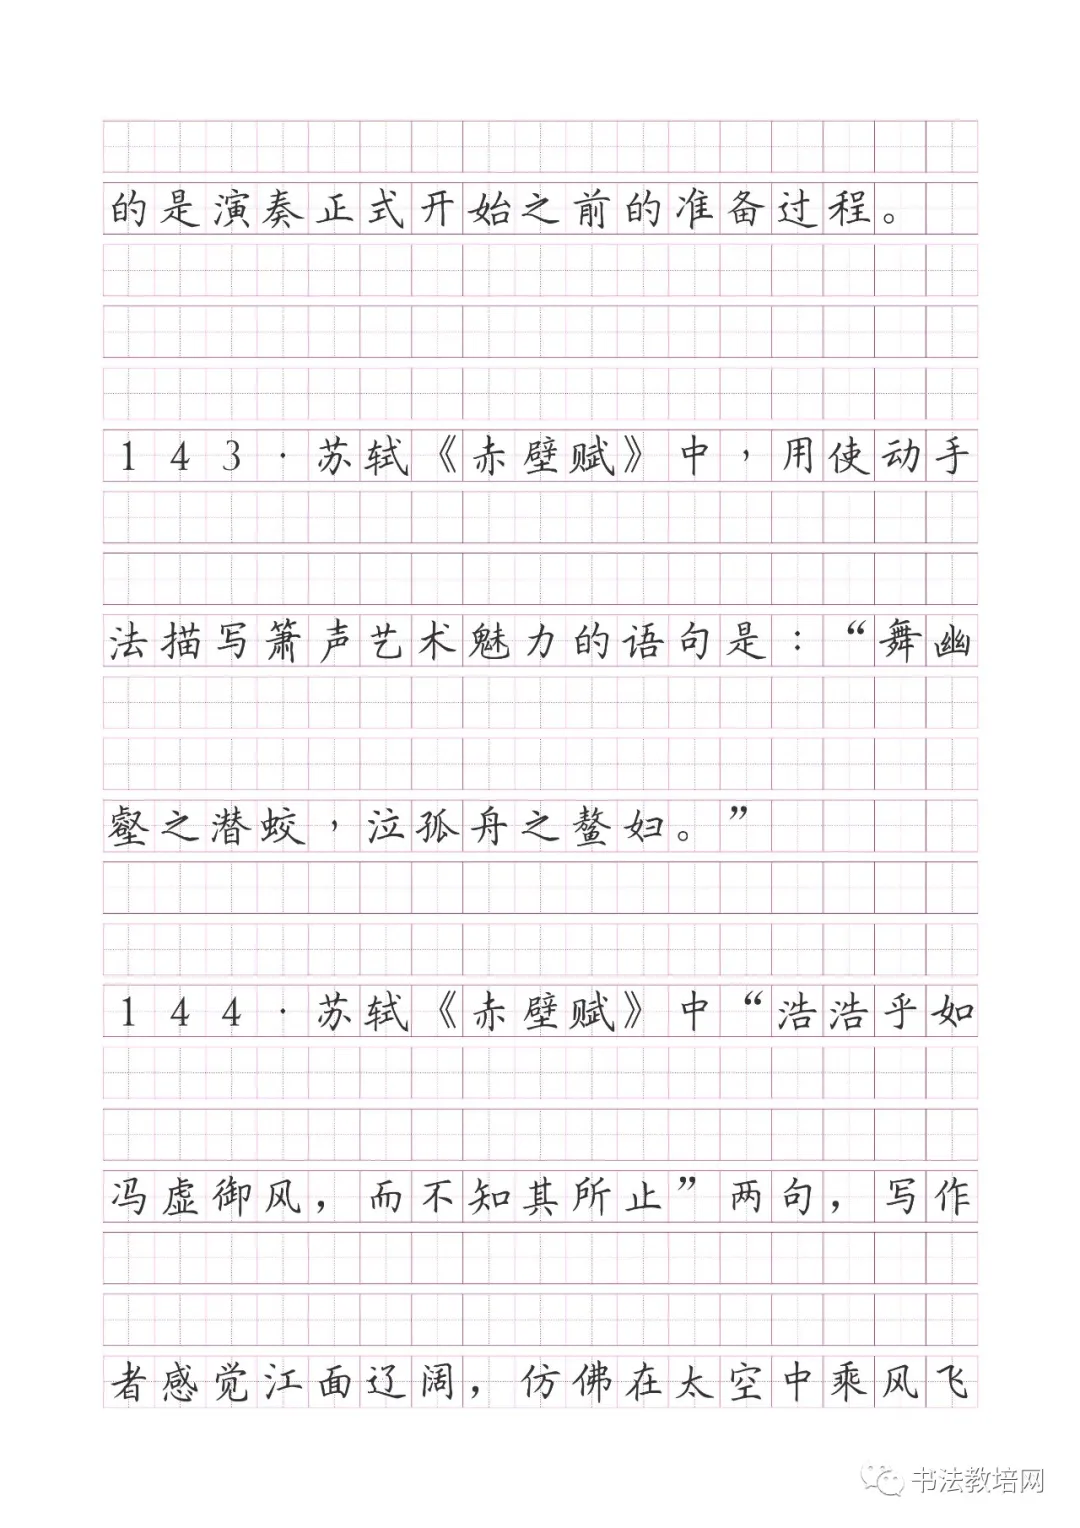 的是演奏正式开始之前的准备过程。
143·苏轼《赤壁赋》中，用使动手
法描写箫声艺术魅力的语句是：“舞幽
壑之潜蛟，泣孤舟之鳌妇。”
144·苏轼《赤壁赋》中“浩浩乎如
冯虚御风，而不知其所止”两句，写作
者感觉江面辽阔，仿佛在太空中乘风飞
书法教培网